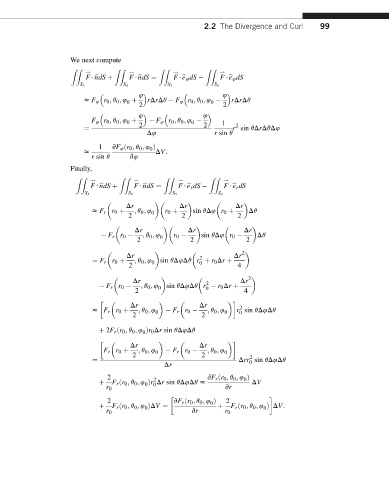 2.2 The Divergence and Curl 99
We next compute
∬_{S_1} F⃗ · n⃗dS + ∬_{S_2} F⃗ · n⃗dS = ∬_{S_1} F⃗ · e⃗_φdS − ∬_{S_2} F⃗ · e⃗_φdS
≈ F_φ (r_0, θ_0, φ_0 + φ/2) rΔrΔθ − F_φ (r_0, θ_0, φ_0 − φ/2) rΔrΔθ
= [F_φ (r_0, θ_0, φ_0 + φ/2) − F_φ (r_0, θ_0, φ_0 − φ/2)]/Δφ · 1/(r sin θ) r² sin θΔrΔθΔφ
≈ 1/(r sin θ) ∂F_φ(r_0, θ_0, φ_0)/∂φ ΔV.
Finally,
F⃗ · n⃗dS + ∬ F⃗ · n⃗dS = ∬ F⃗ · e⃗_rdS − ∬ F⃗ · e⃗_rdS
≈ F_r (r_0 + Δr/2, θ_0, φ_0) (r_0 + Δr/2) sin θΔφ (r_0 + Δr/2) Δθ
− F_r (r_0 − Δr/2, θ_0, φ_0) (r_0 − Δr/2) sin θΔφ (r_0 − Δr/2) Δθ
= F_r (r_0 + Δr/2, θ_0, φ_0) sin θΔφΔθ (r_0² + r_0Δr + Δr²/4)
− F_r (r_0 − Δr/2, θ_0, φ_0) sin θΔφΔθ (r_0² − r_0Δr + Δr²/4)
≈ [F_r (r_0 + Δr/2, θ_0, φ_0) − F_r (r_0 − Δr/2, θ_0, φ_0)] r_0² sin θΔφΔθ
+ 2F_r(r_0, θ_0, φ_0)r_0Δr sin θΔφΔθ
= [F_r (r_0 + Δr/2, θ_0, φ_0) − F_r (r_0 − Δr/2, θ_0, φ_0)]/Δr Δrr_0² sin θΔφΔθ
+ 2/r_0 F_r(r_0, θ_0, φ_0)r_0²Δr sin θΔφΔθ ≈ ∂F_r(r_0, θ_0, φ_0)/∂r ΔV
+ 2/r_0 F_r(r_0, θ_0, φ_0)ΔV = [∂F_r(r_0, θ_0, φ_0)/∂r + 2/r_0 F_r(r_0, θ_0, φ_0)] ΔV.